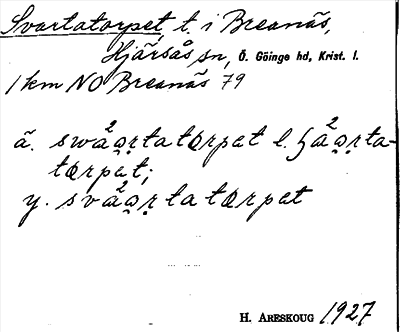 Svartatorpet, t. i Breanäs,
Hjärsås sn, Ö. Göinge hd, Krist. l.
1 km NO Breanäs 79
ä. swa²ạṛtatœrpat l. ha²ạṛta-
tœrpat;
y. sva²ạṛtatœrpat
H. Areskoug 1927